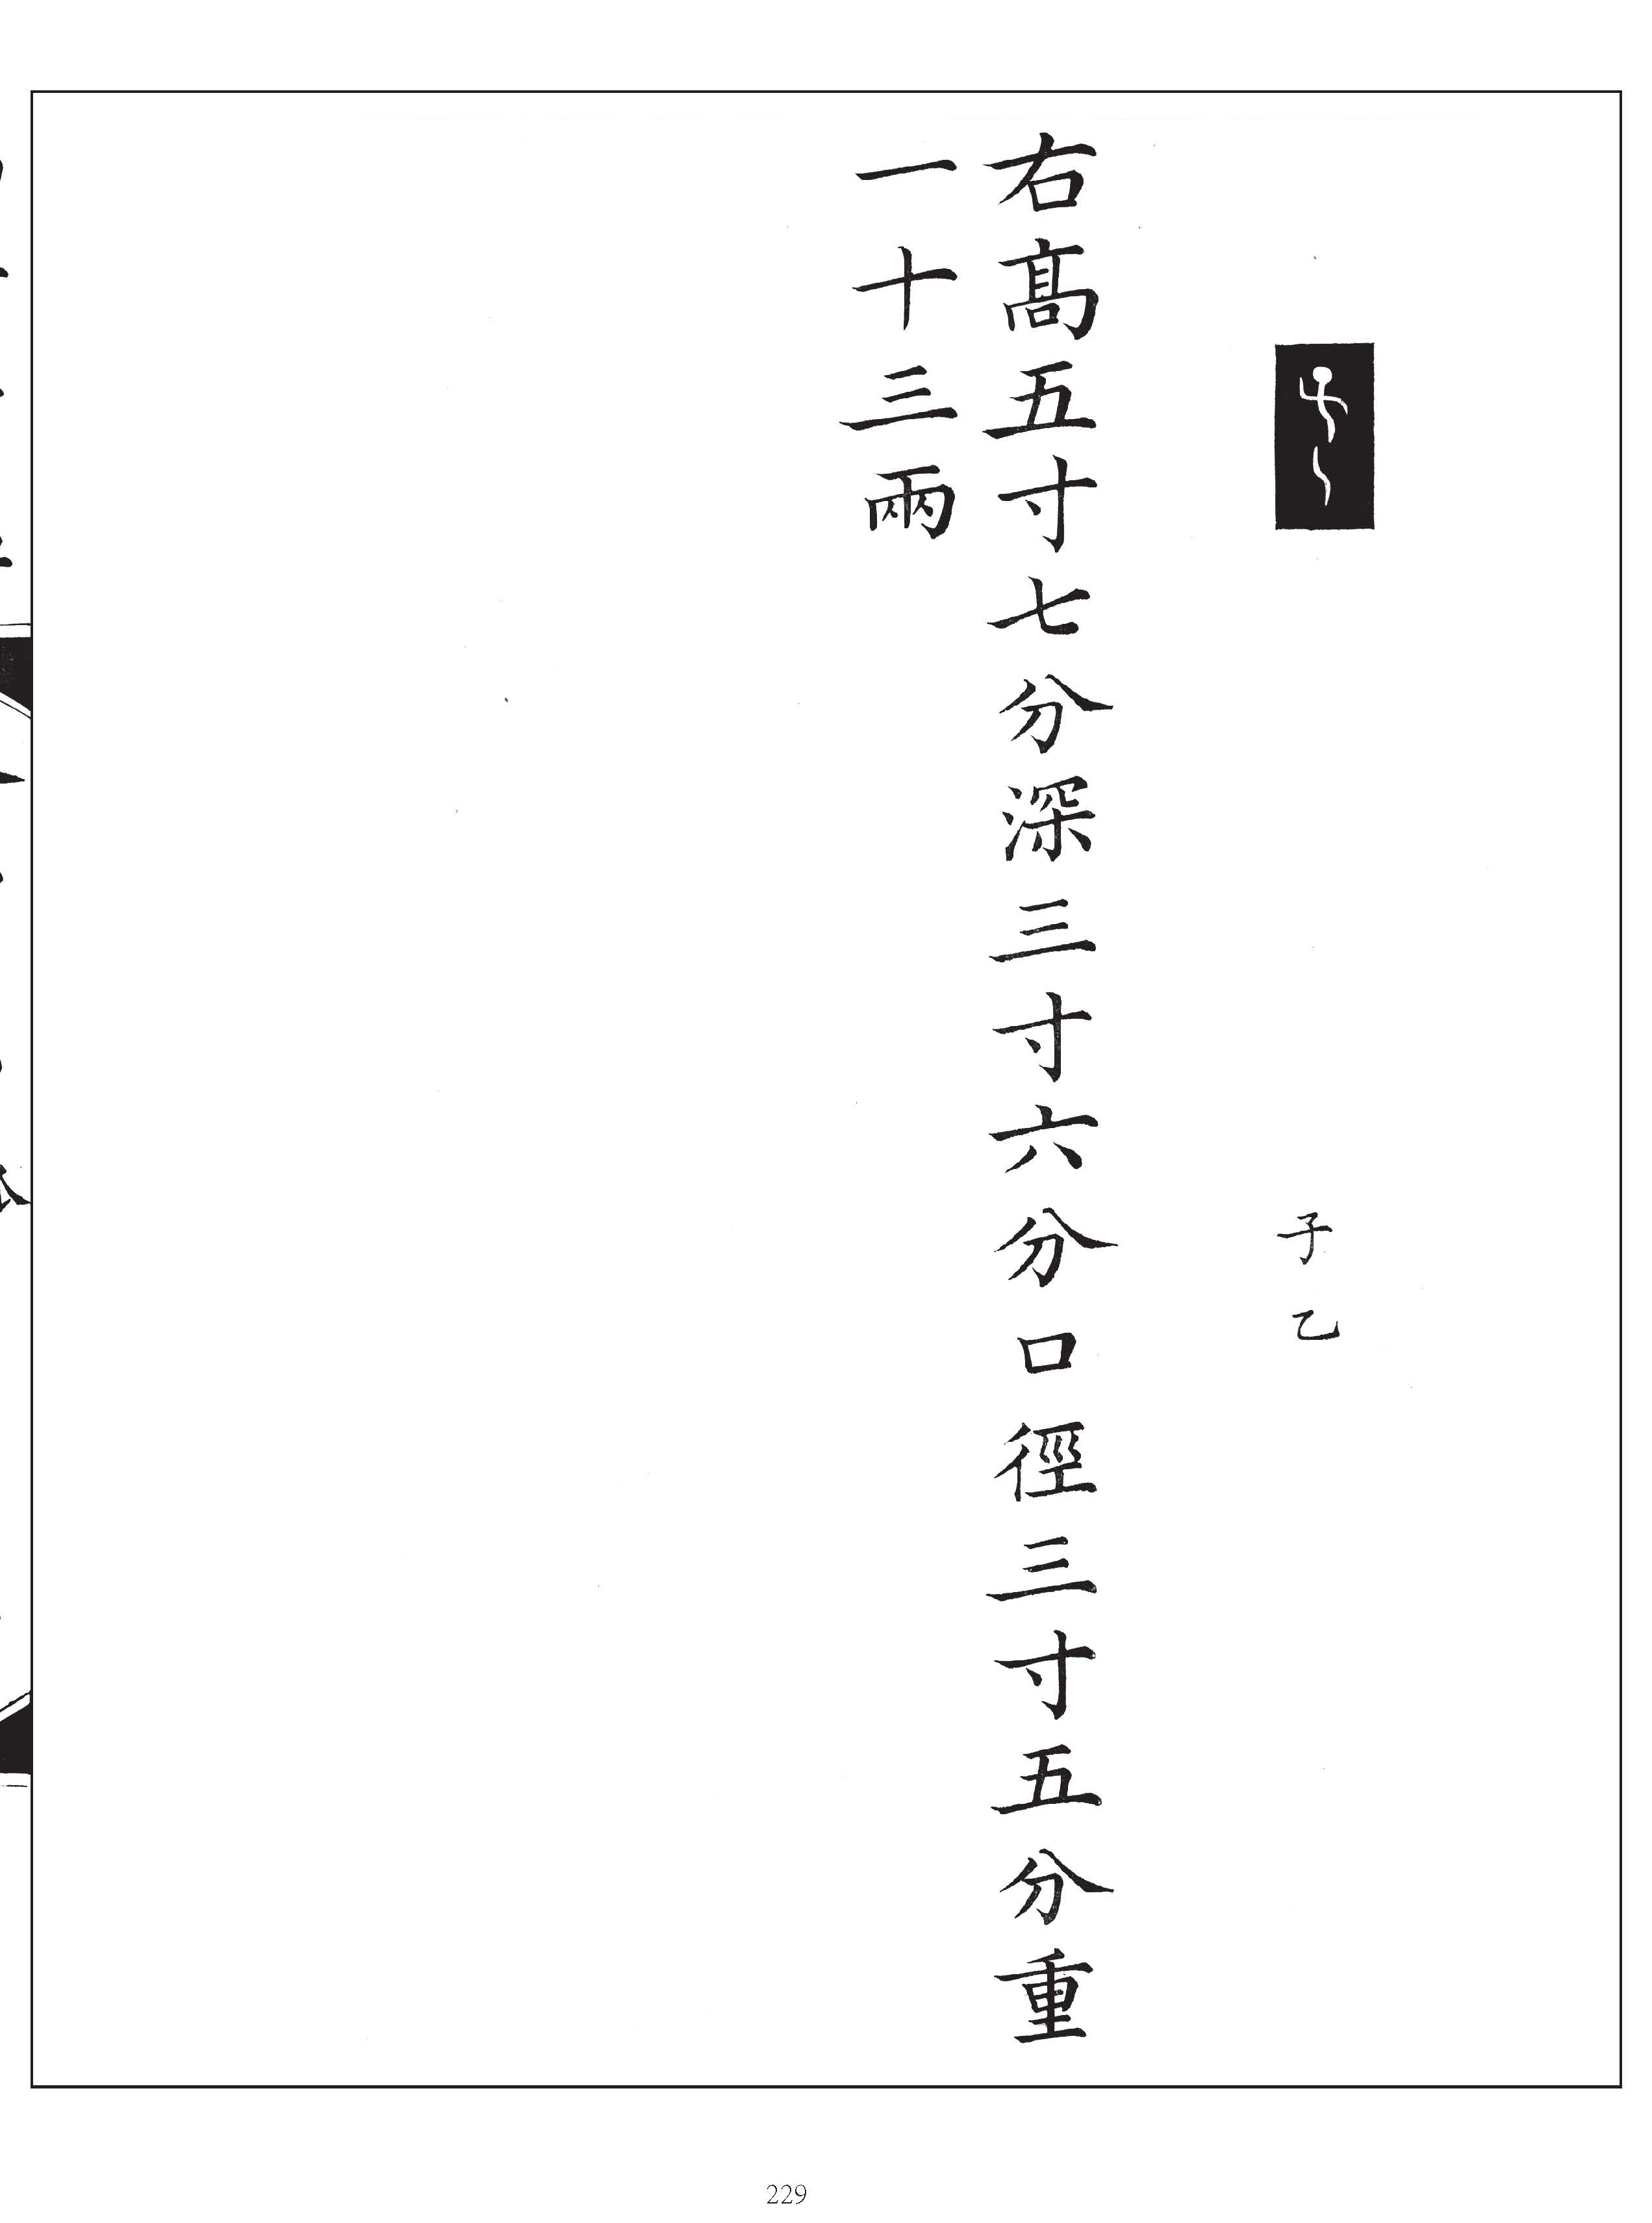 子乙
右高五寸七分深三寸六分口徑三寸五分重
一十三兩
229